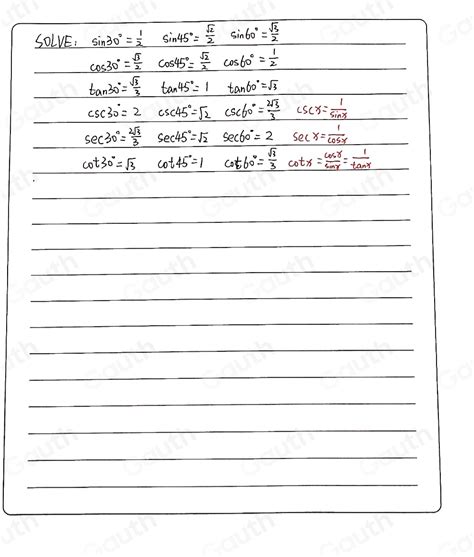 SOLVE: sin30°=1/2 sin45°=√2/2 sin60°=√3/2
cos30°=√3/2 cos45°=√2/2 cos60°=1/2
tan30°=√3/3 tan45°=1 tan60°=√3
csc30°=2 csc45°=√2 csc60°=2√3/3 cscx=1/sinx
sec30°=2√3/3 sec45°=√2 sec60°=2 secx=1/cosx
cot30°=√3 cot45°=1 cot60°=√3/3 cotx=cosx/sinx=1/tanx
Gauth